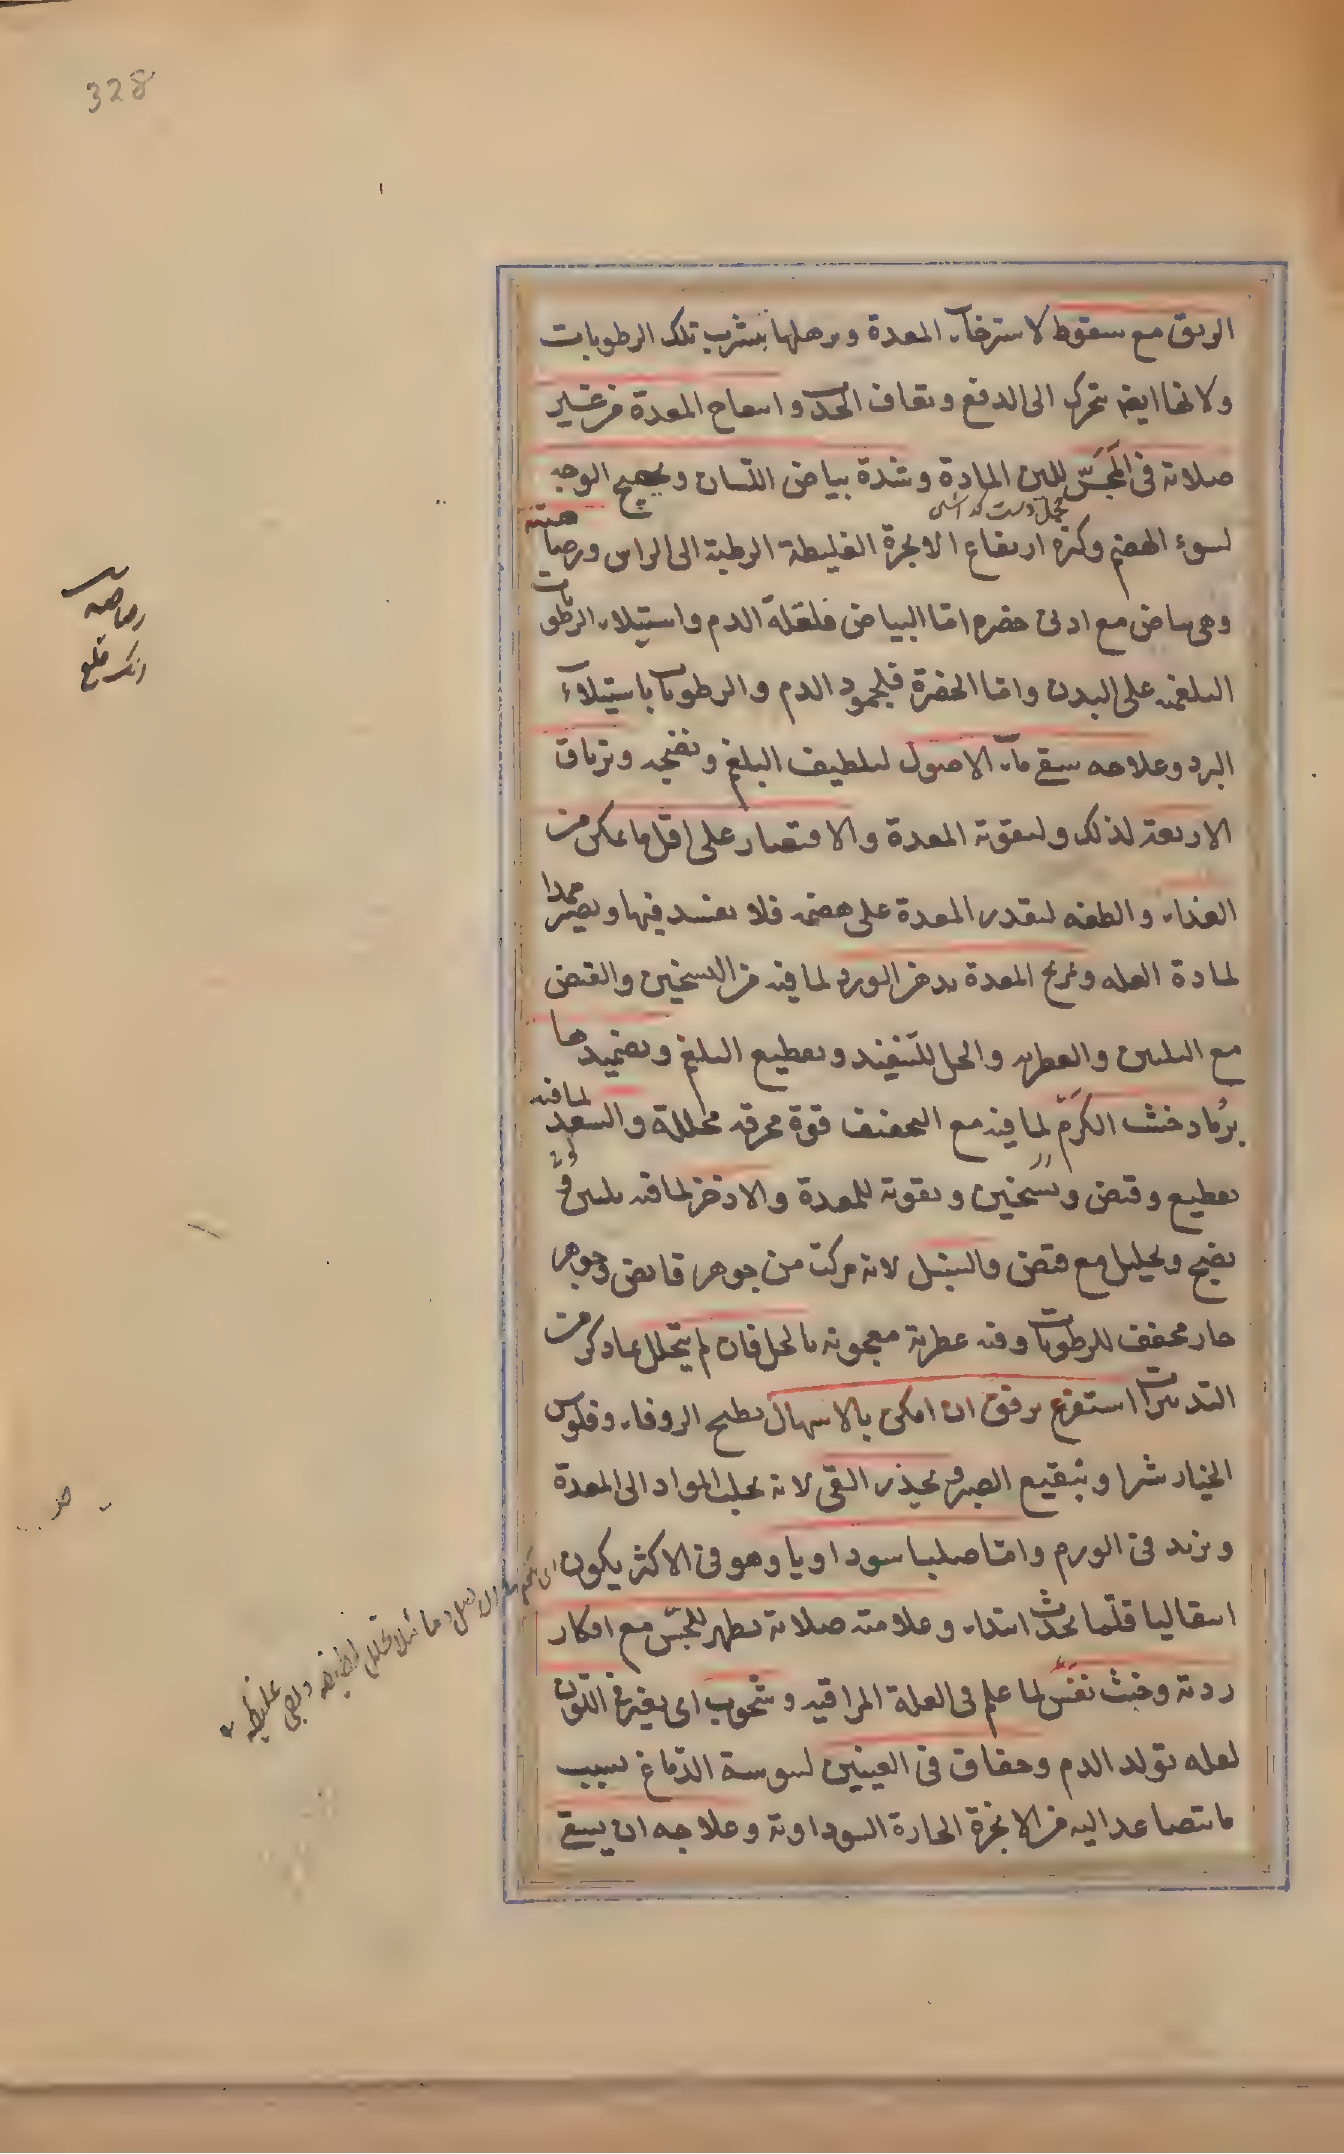 328
الريق مع سقوط لاسترخاء المعدة وترهلها بتشرب تلك الرطوبات
ولانها ايضا تتحرك الى الدفع وتعاف الحد وانتفاخ المعدة من غير
صلابة فى المَجَسّ للين المادة وشدة بياض اللسان وتهيج الوجه
لسوء الهضم وكثرة ارتفاع الابخرة الغليظة الرطبة الى الراس ورصاصيته
وهى بياض مع ادنى خضرة اما البياض فلقلة الدم واستيلاء الرطوبات
البلغمية على البدن واما الخضرة فلجمود الدم والرطوبات باستيلاء
البرد وعلاجه سقى ماء الاصول لتلطيف البلغم ونضجه وترياق
الاربعة لذلك ولتقوية المعدة والاقتصار على اقل ما يمكن من
الغذاء والطفه لتقدر المعدة على هضمه فلا يفسد فيها ويصير ممدا
لمادة العلة وتمريخ المعدة بدهن الورد لما فيه من التسخين والقبض
مع التليين والعطرية والخل للتنفيذ وتقطيع البلغم وتضميدها
برُماد خشب الكَرَمْ لما فيه مع التجفيف قوة محرقة محللة والسعد لما فيه
تقطيع وقبض وتسخين وتقوية للمعدة والاذخر لما فيه تليين وقوة
نضج وتحليل مع قبض والسنبل لانه مركب من جوهر قابض وجوهر
حار مجفف للرطوبات وفيه عطرية معجونة بالخل فان لم يتحلل بما ذكر من
التدبيرات استفرغ برفق ان امكن بالاسهال بطبخ الزوفاء وفلوس
الخيار شنبر وبنقيع الصبر ويحذر القى لانه يجلب المواد الى المعدة
ويزيد فى الورم واما صلبا سوداويا وهو فى الاكثر يكون
انتقاليا قلّما يحدث ابتداء وعلامته صلابة تظهر للمجسّ مع افكار
ردية وخبث نفَسَ لما علم فى العلة المراقية وشحوب اى تغير فى اللون
لقلة تولد الدم وجفاف فى العينين ليبوسة الدماغ بسبب
ما يتصاعد اليه من الابخرة الحارة السوداوية وعلاجه ان يسقى
رصاصيت
رنك قلع